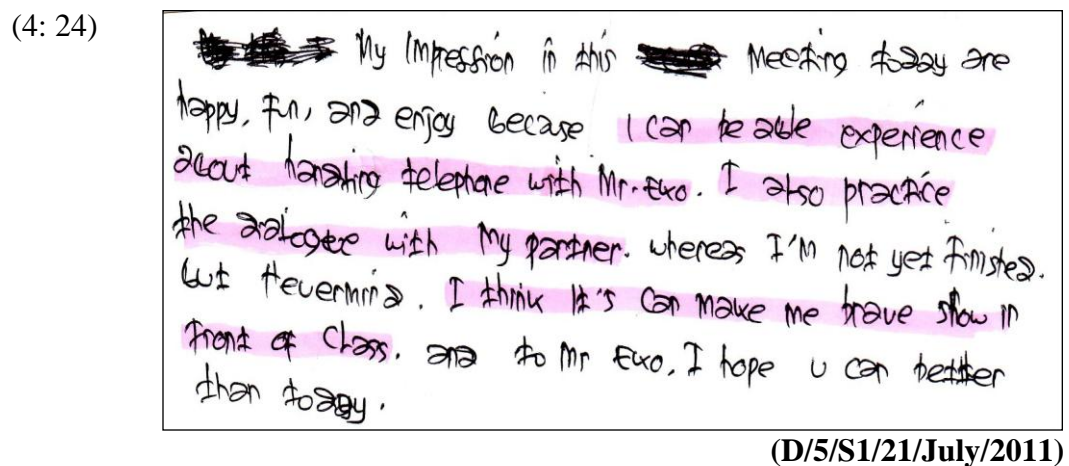 (4: 24)
My Impression in this Meeting today are
happy, fun, and enjoy becase I can be able experience
about handling telephone with Mr. Eko. I also practice
the dialogee with My partner. whereas I'M not yet finished.
but Nevermind. I think It's Can make me brave show in
front of Class. and to Mr Eko, I hope u can better
than today.
(D/5/S1/21/July/2011)